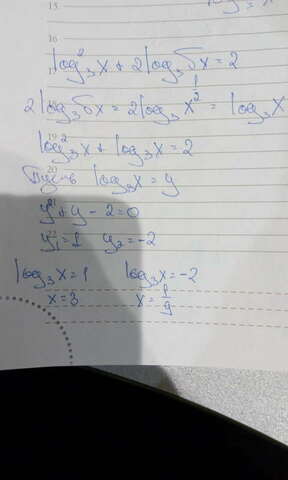 log²₃x + 2log₃√x = 2
2log₃√x = 2log₃x^(1/2) = log₃x
log²₃x + log₃x = 2
Пусть log₃x = y
y² + y - 2 = 0
y₁ = 1 y₂ = -2
log₃x = 1 log₃x = -2
x = 3 x = 1/9